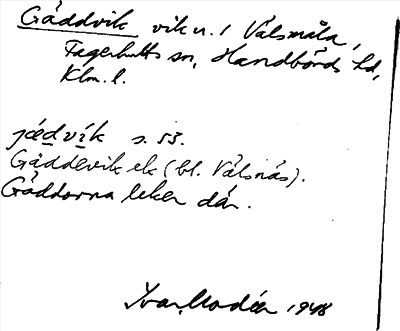 Gäddvik vik u. i Välsmåla,
Fagerhults sn, Handbörds hd,
Klm. l.
jädvík s. 55.
Gäddevik ek (bl. Välsnäs).
Gäddorna leker där.
Ivar Modéer 1948